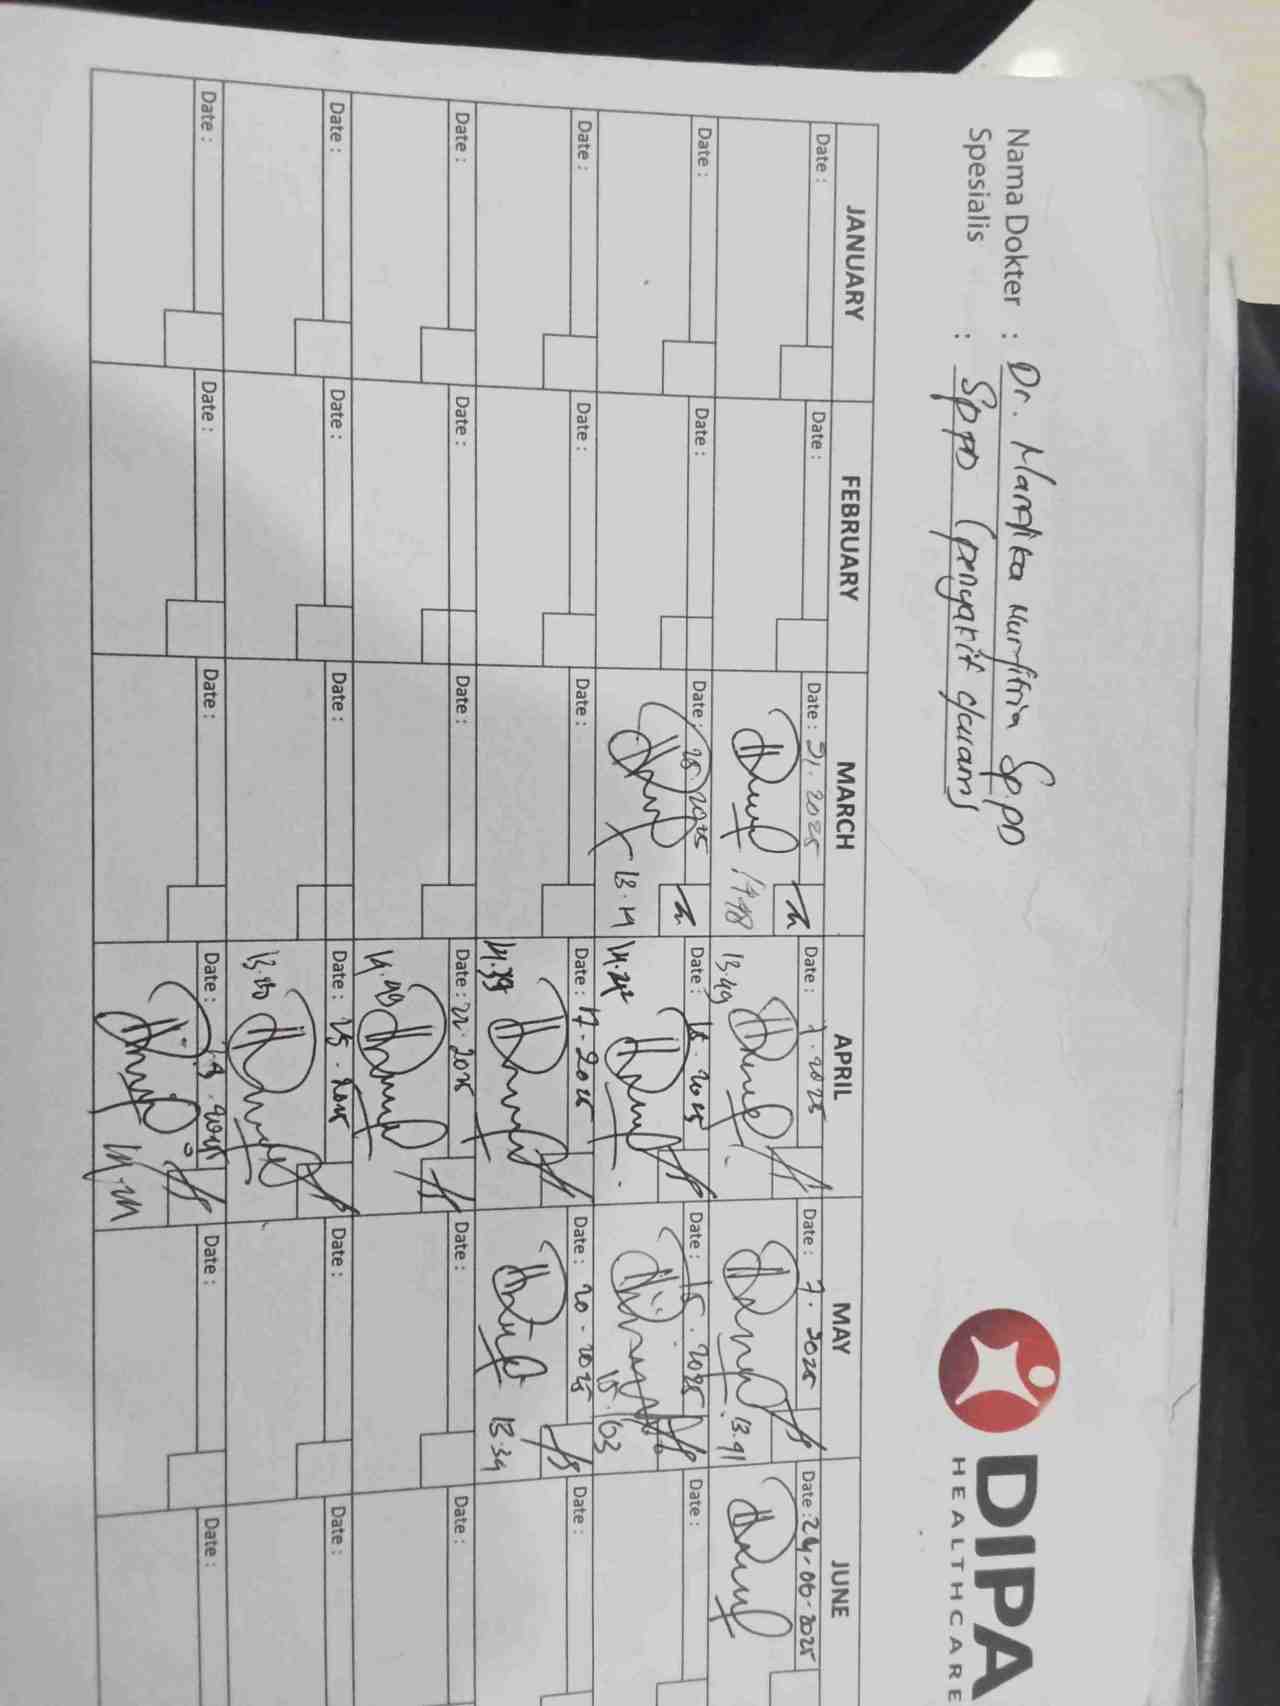 DIPA
HEALTHCARE
Nama Dokter : Dr. Marafika Nurfitria Sp.PD
Spesialis : SpPD (penyakit dalam)
JANUARY FEBRUARY MARCH APRIL MAY JUNE
Date : Date : Date : 21. 2025 Date : 7. 2025 Date : 7. 2025 Date : 24-06-2025
13.49 13.41
Date : Date : Date : 25. 2025 Date : 15. 2025 Date : 15. 2025 Date :
13.14 14.24 15.03
Date : Date : Date : Date : 17-2025 Date : 20-2025 Date :
14.39 13.34
Date : Date : Date : Date : 22. 2025 Date : Date :
14.49
Date : Date : Date : Date : 25. 2025 Date : Date :
13.50
Date : Date : Date : Date : Date : Date :